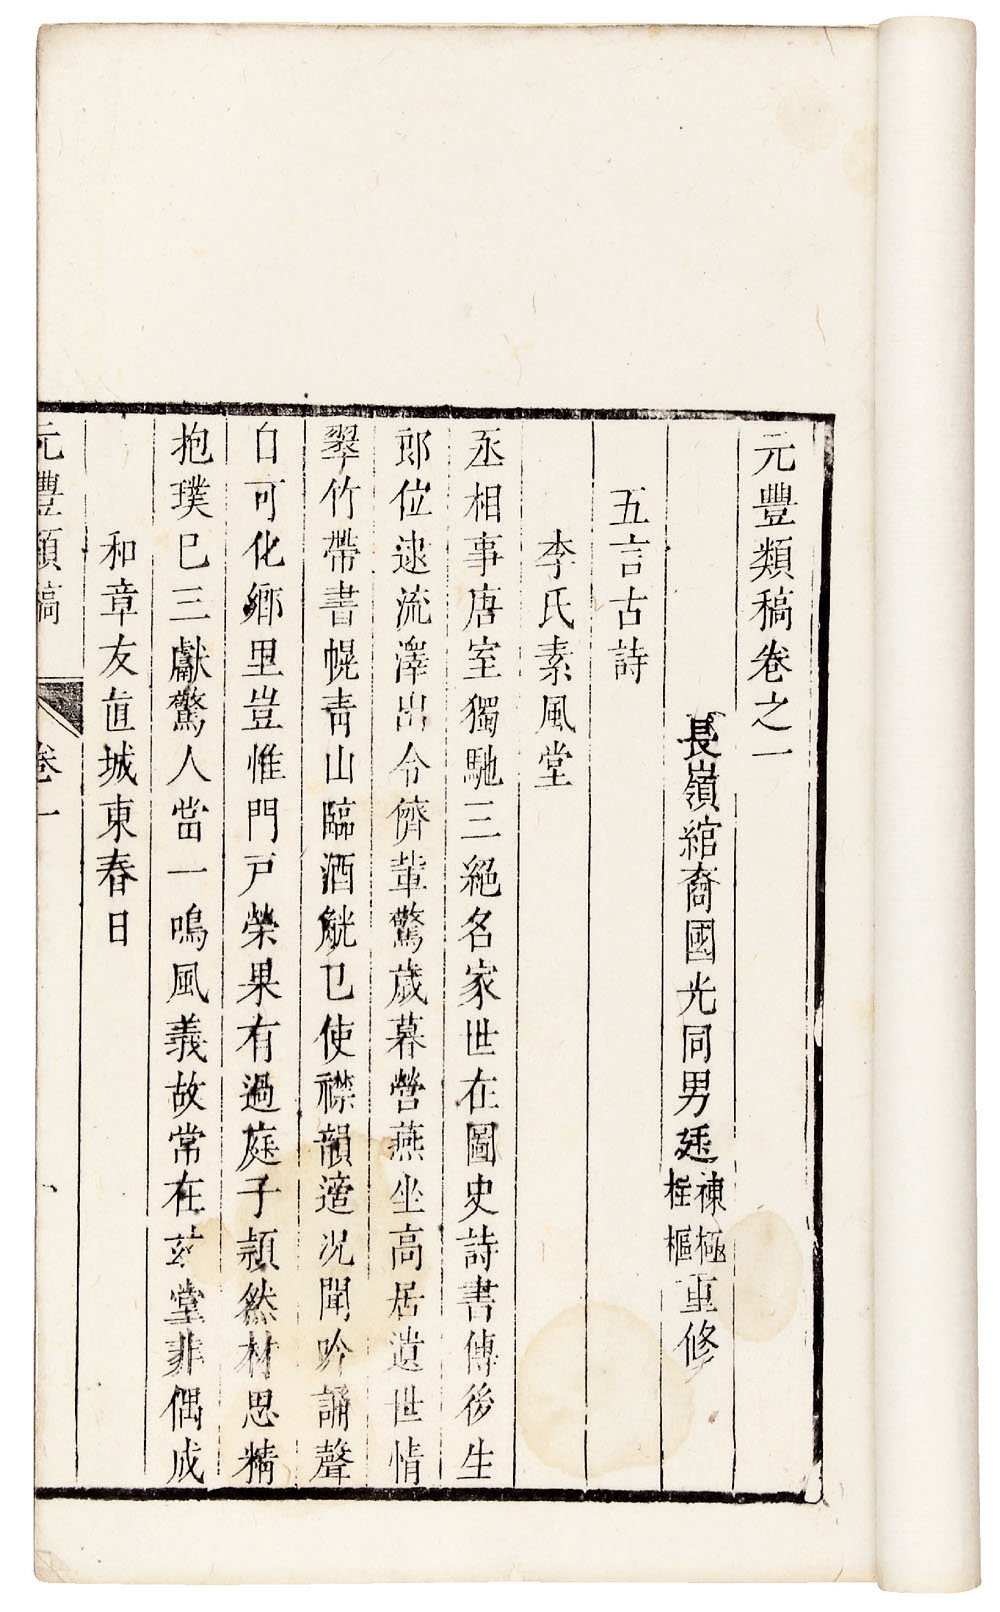 元豐類稿卷之一
長嶺綰裔國光同男廷棟極柱樞重修
五言古詩
李氏素風堂
丞相事唐室獨馳三絕名家世在圖史詩書傳後生
郎位逮流澤出令儕輩驚歲暮營燕坐高居遺世情
翠竹帶書幌青山臨酒觥已使襟韻適况聞吟誦聲
白可化鄉里豈惟門戸榮果有過庭子頴然材思精
抱璞已三獻驚人當一鳴風義故常在茲堂非偶成
和章友直城東春日
元豐類稿 卷一